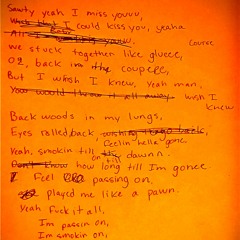 Sawty yeah I miss youuu,
I could kiss you, yeaha
Course
we stuck together like glueee,
02, back in the coupeee,
But I wish I knew, yeah man,
wish I
knew
Back woods in my lungs,
Eyes rolled back,
Feelin hella gone
Yeah, smokin till dawnn.
on till
how long till Im gonee
I Feel passing on,
played me like a pawn.
Yeah Fuck it all,
Im passin on,
Im smokin on,